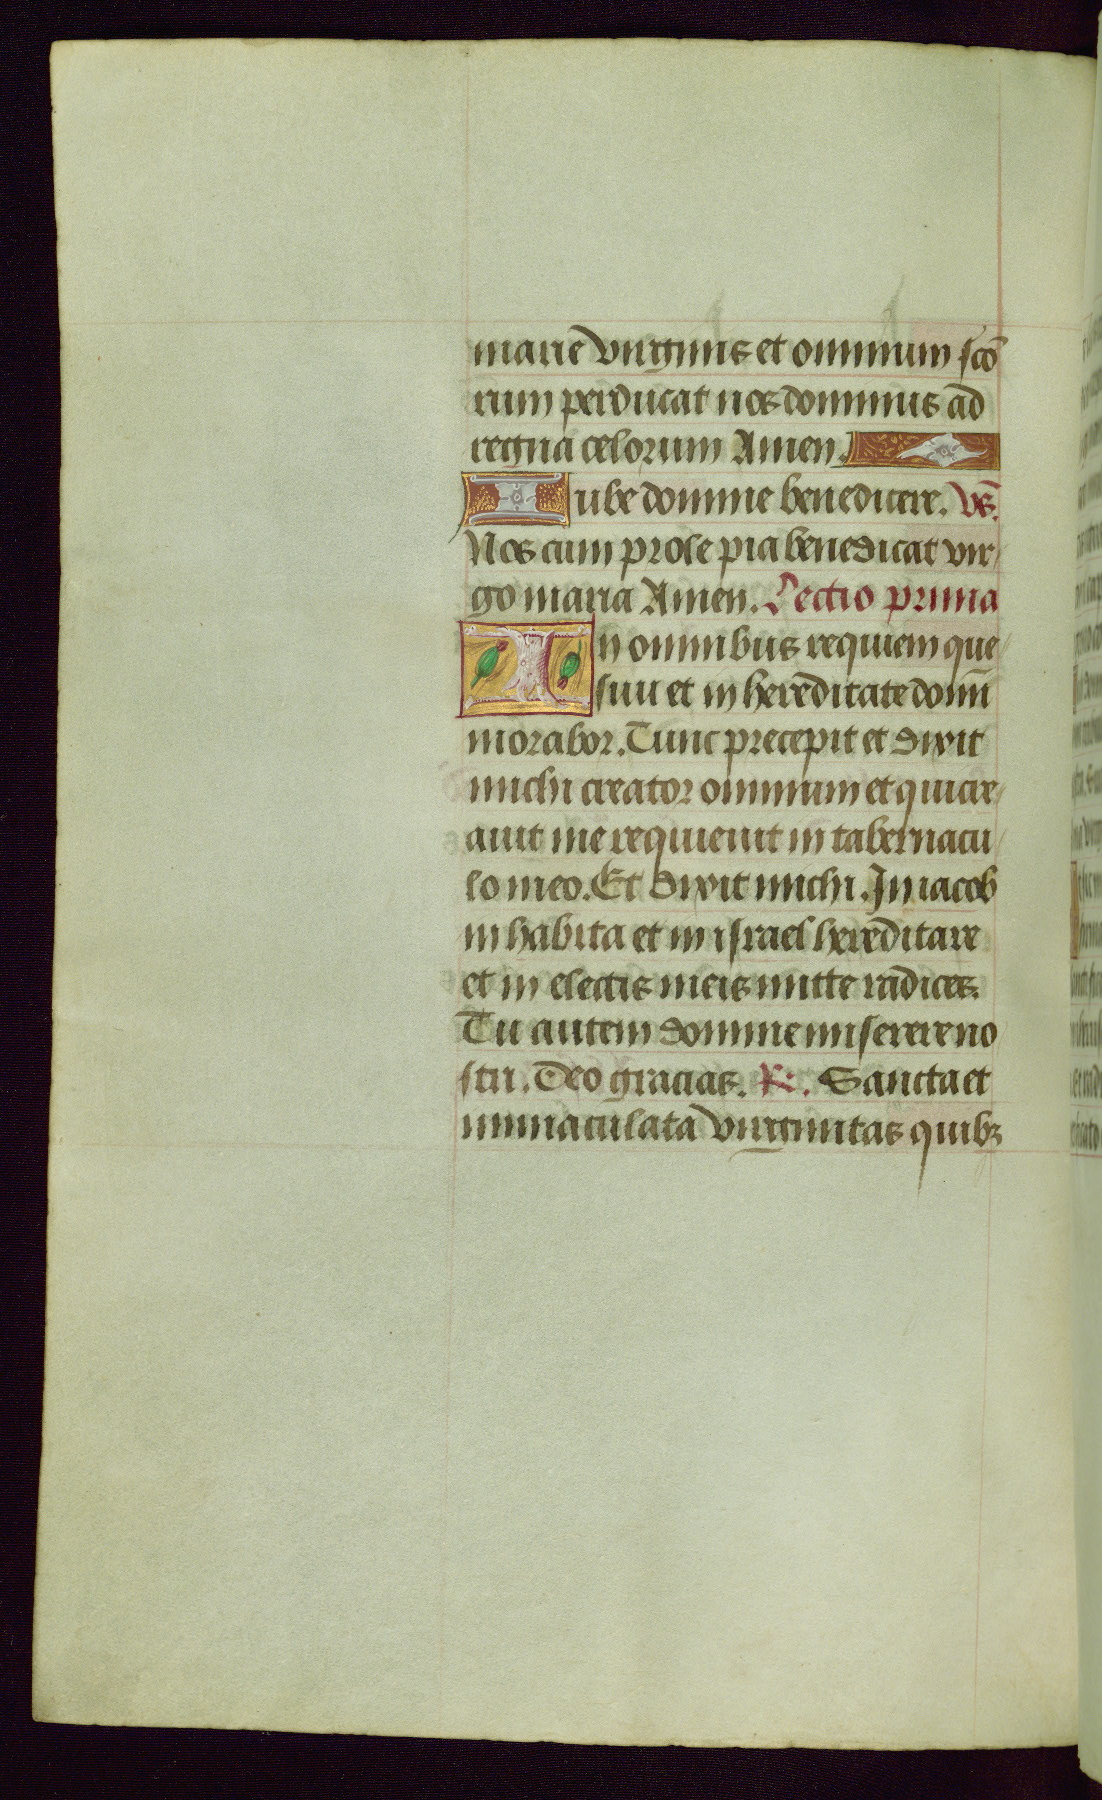 marie virginis et omnium scō
rum perducat nos dominus ad
regna celorum Amen.
Iube domine benedicere. Vs̄.
Nos cum prole pia benedicat vir
go maria Amen. Lectio prima
In omnibus requiem que
siui et in hereditate domī
morabor. Tunc precepit et dixit
michi creator omnium et qui cre
auit me requieuit in tabernacu
lo meo. Et dixit michi. In iacob
inhabita et in israel hereditare
et in electis meis mitte radices.
Tu autem domine miserere no
stri. Deo gracias. R. Sancta et
immaculata virginitas quibꝫ